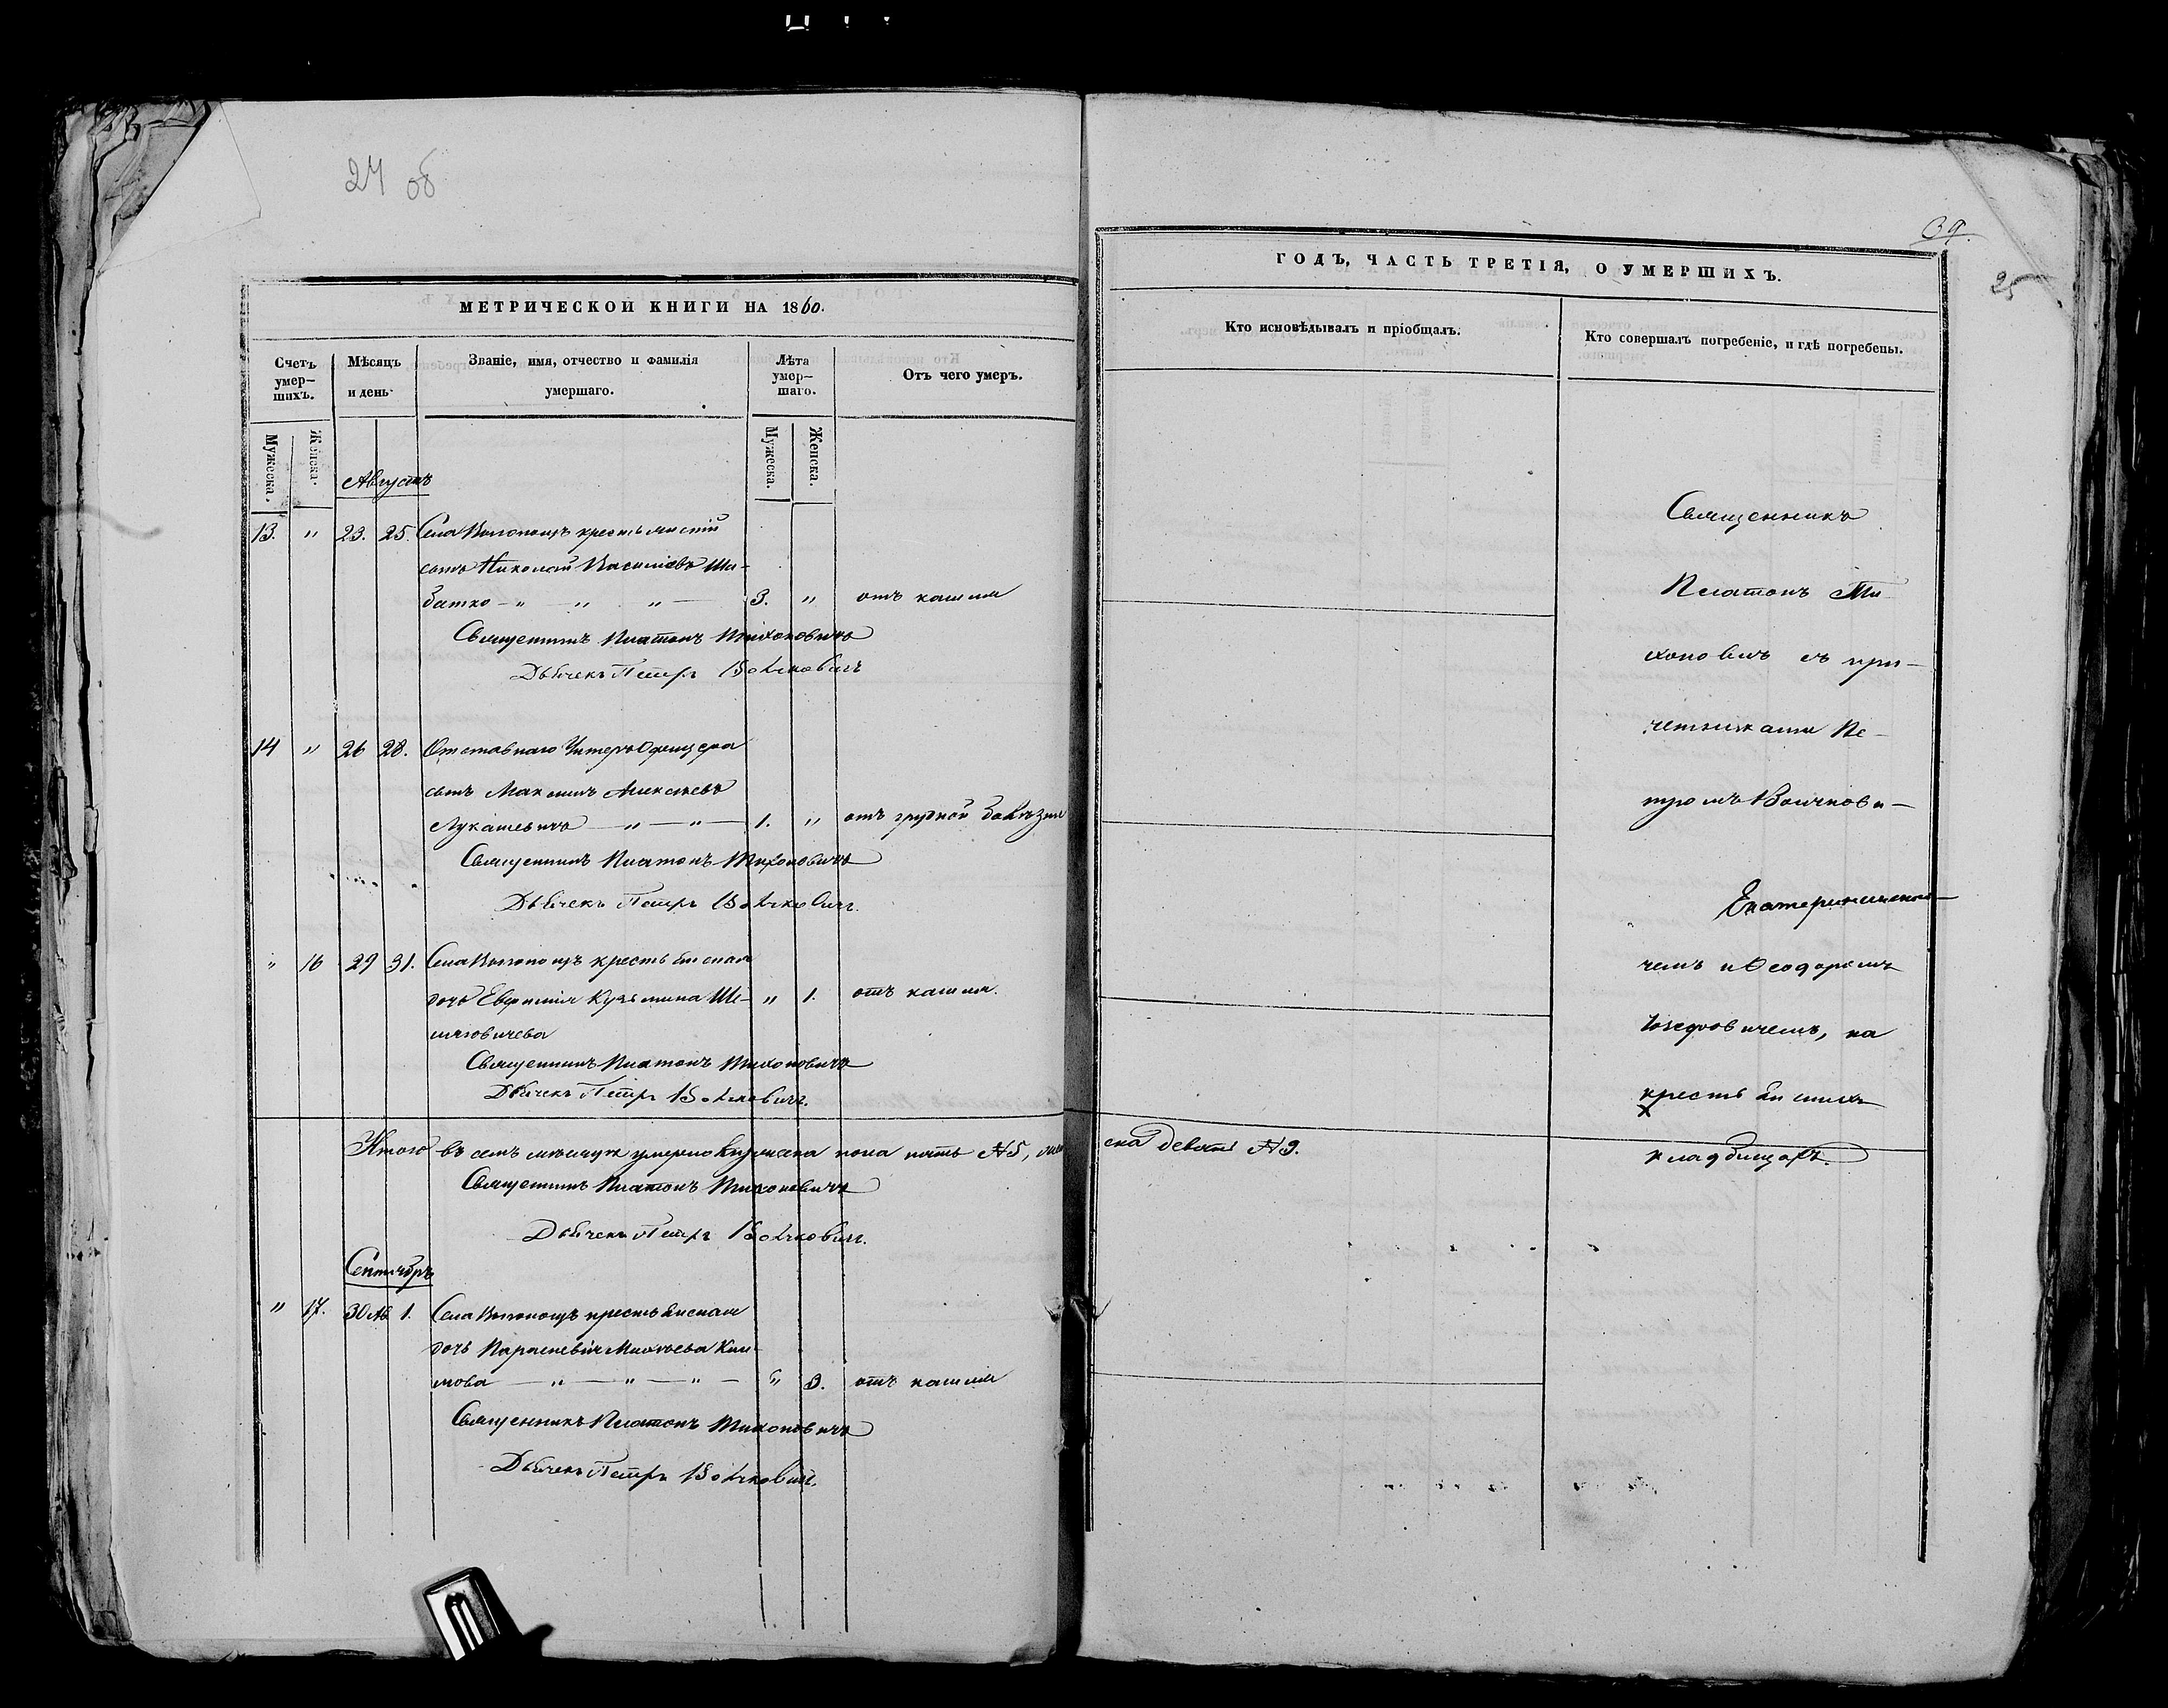 24 об
МЕТРИЧЕСКОЙ КНИГИ НА 1860.
Счетъ умер-
шихъ.
Мѣсяцъ
и день
Званіе, имя, отчество и фамилія
умершаго.
Лѣта
умер-
шаго.
Отъ чего умеръ.
Мужеска.
Женска.
Мужеска.
Женска.
Августъ
13. " 23. 25. Села крестьянскій
сынъ Николай Васильевъ Ша-
батко — " " " — 3. " отъ кашля
Священникъ Платонъ Тихоновичъ
Дьячекъ Петръ Волчковичъ
14 " 26 28. Отставнаго Унтеръ Офицера
сынъ Максимъ Алексѣевъ
Лукашевичъ — " — " — 1. " отъ грудной болѣзни
Священникъ Платонъ Тихоновичъ
Дьячекъ Петръ Волчковичъ.
" 16 29 31. Села крестьянская
дочь Евфимія Кузьмина Ше- " 1. отъ кашля.
Священникъ Платонъ Тихоновичъ
Дьячекъ Петръ Волчковичъ.
Итого въ семъ мѣсяцѣ умерло мужеска пола пять №5, жен
Священникъ Платонъ Тихоновичъ
Дьячекъ Петръ Волчковичъ.
Сентябрь
" 17. 30 Ав 1. Села крестьянская
дочь Параскевія Кли-
мова — " — " — " — " 3. отъ кашля
Священникъ Платонъ Тихоновичъ
Дьячекъ Петръ Волчковичъ.
39.
25
ГОДЪ, ЧАСТЬ ТРЕТІЯ, О УМЕРШИХЪ.
Кто исповѣдывалъ и пріобщалъ.
Кто совершалъ погребеніе, и гдѣ погребены.
Священникъ
Платонъ Ти
хоновичъ съ при-
четниками Пе-
тромъ Волчкови-
чемъ и Ѳеодоромъ
Іозефовичемъ, на
крестьянскихъ
кладбищахъ.
ска девять №9.